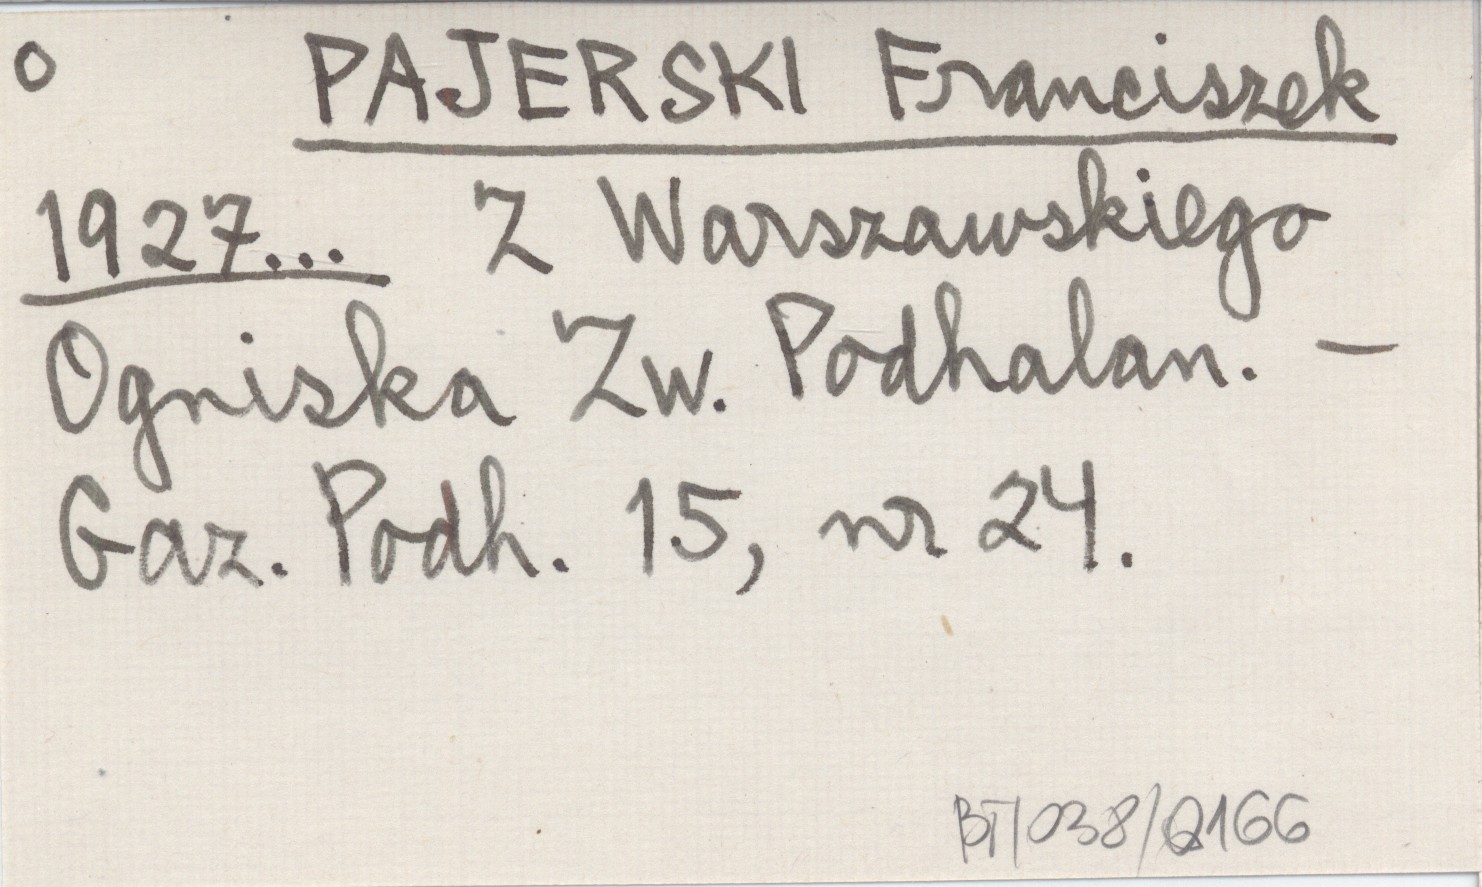 o PAJERSKI Franciszek
1927... Z Warszawskiego
Ogniska Zw. Podhalan. –
Gaz. Podh. 15, nr 24.
BT/038/0166